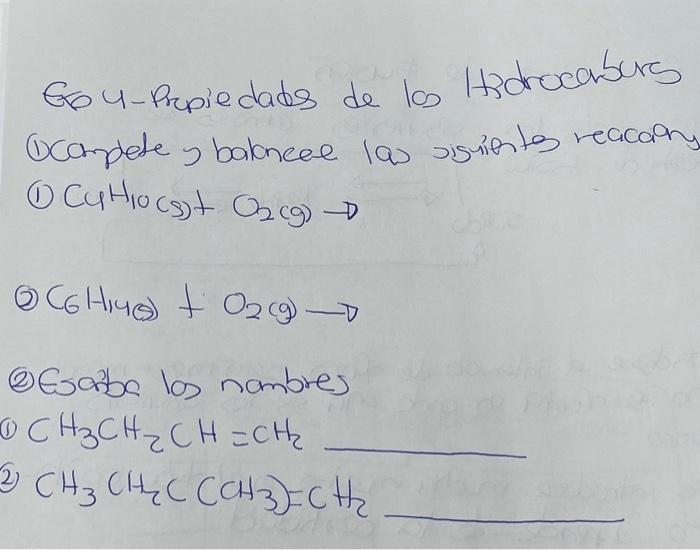 4-Propiedades de los Hidrocarburs
① Complete y balancee las siguientes reaccions
① C4H10(g) + O2(g) →
② C6H14(g) + O2(g) →
② Escriba los nombres
① CH3CH2CH=CH2
② CH3CH2C(CH3)=CH2